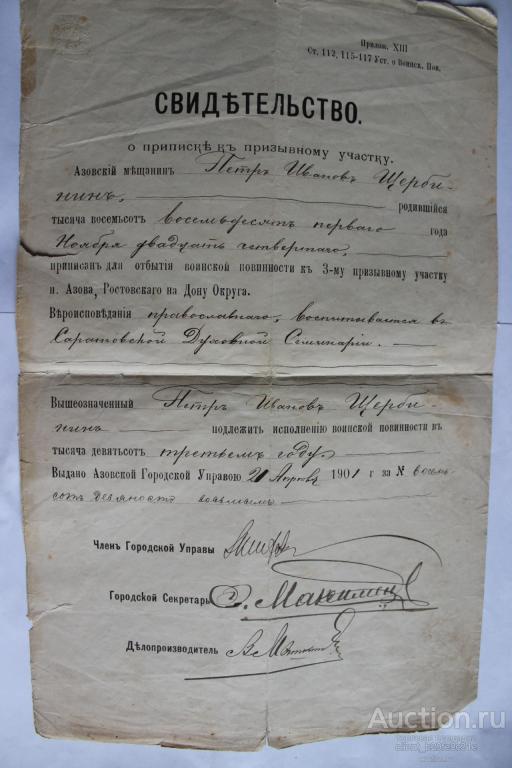 Прилож. XIII
Ст. 112, 115-117 Уст. о Воинск. Пов.
СВИДѢТЕЛЬСТВО.
о припискѣ къ призывному участку.
Азовскій мѣщанинъ Петръ Ивановъ Щерби-
нинъ, родившійся
тысяча восемьсот восемьдесятъ перваго года
Ноября двадцать четвертаго,
приписанъ для отбытія воинской повинности къ 3-му призывному участку
п. Азова, Ростовскаго на Дону Округа.
Вѣроисповѣданія православнаго, воспитывается въ
Саратовской Духовной Семинаріи.
Вышеозначенный Петръ Ивановъ Щерби-
нинъ подлежитъ исполненію воинской повинности въ
тысяча девятьсот третьемъ году.
Выдано Азовской Городской Управою 21 Апрѣля 1901 г за № восемь
сотъ девяносто
Членъ Городской Управы
Городской Секретарь
Дѣлопроизводитель
Auction.ru